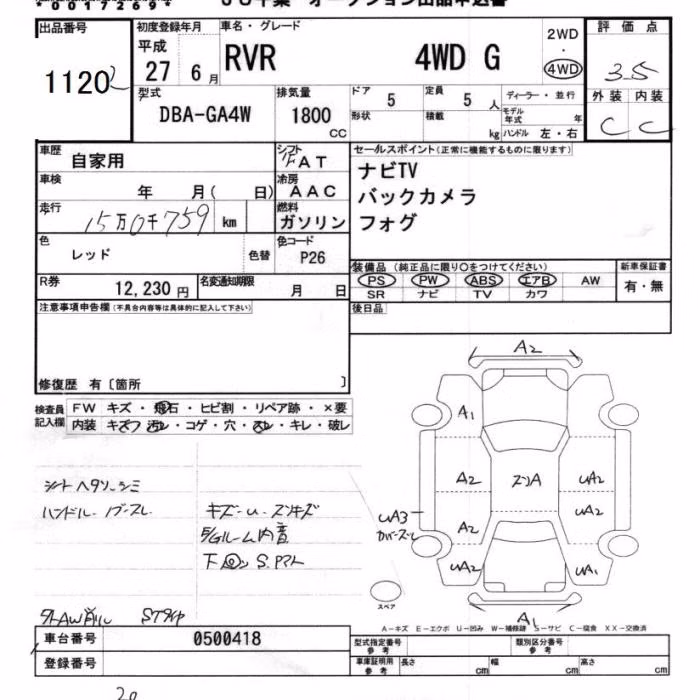 00172694
JU千葉 オークション出品申込書
出品番号 初度登録年月 車名・グレード 2WD・4WD 評価点
1120 平成27 6月 RVR 4WD G 3.5
型式 排気量 ドア 5 定員 5人 ディーラー・並行 外装 内装
DBA-GA4W 1800CC 形状 積載 kg モデル年式 年 C C
ハンドル 左・右
車歴 自家用 シフト FAT セールスポイント(正常に機能するものに限ります)
車検 年 月( 日) 冷房 AAC ナビTV
走行 15万0千759km 燃料 ガソリン バックカメラ
フォグ
色 レッド 色替 色コード P26
装備品(純正品に限り○をつけてください) 新車保証書
R券 12,230円 名変通知期限 月 日 PS PW ABS エアB AW 有・無
SR ナビ TV カワ
注意事項申告欄(不具合内容等は具体的に記入して下さい) 後日品
修復歴 有〔箇所 〕
検査員記入欄 FW キズ・飛石・ヒビ割・リペア跡・×要
内装 キズ 汚レ・コゲ・穴・スレ・キレ・破レ
A2
A1
A2 ズソA UA2
UA2
UA3 A2
UA2 UA1
A1
シートヘタリ シミ
ハンドル
キズ・U・ズソキズ
ルーム内音
下
スペア
STタイヤ
A-キズ E-エクボ U-凹み W-補修跡 S-サビ C-腐食 XX-交換済
車台番号 0500418 型式指定番号 参考 類別区分番号 参考
登録番号 車庫証明用 参考 長さ cm 幅 cm 高さ cm